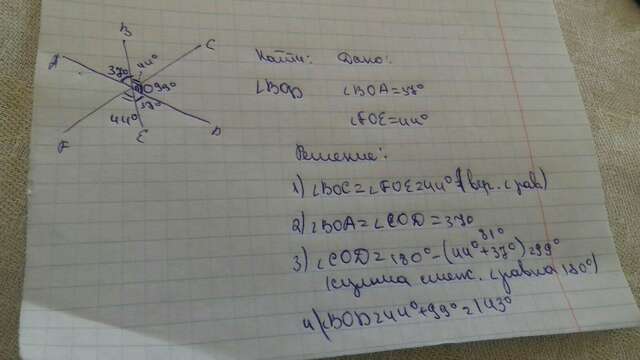 B
C
A
37° 44°
O 99°
37°
44°
F
E
D
Найти: Дано:
∠BOD ∠BOA=37°
∠FOE=44°
Решение:
1) ∠BOC=∠FOE=44° (вер. ∠ рав)
2) ∠BOA=∠COD=37°
81°
3) ∠COD=180°-(44°+37°)=99°
(сумма смеж. ∠ равна 180°)
4) ∠BOD=44°+99°=143°